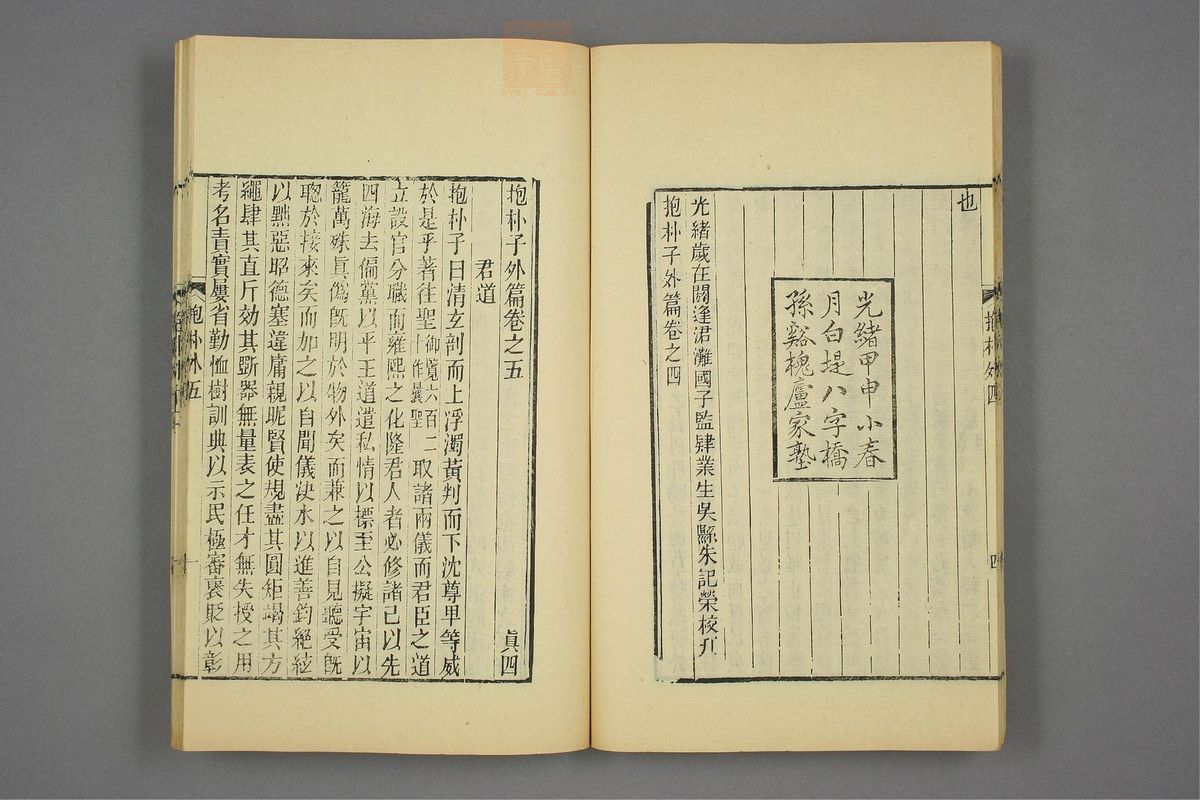 也
光緒甲申小春
月白堤八字橋
孫谿槐廬家塾
光緒歲在閼逢涒灘國子監肄業生吳縣朱記榮校刋
抱朴子外篇卷之四
抱朴外四
四
抱朴子外篇卷之五
眞四
君道
抱朴子曰清玄剖而上浮濁黃判而下沈尊卑等威
於是乎著往聖御覽六百二十作曩聖取諸兩儀而君臣之道
立設官分職而雍熙之化隆君人者必修諸己以先
四海去偏黨以平王道遣私情以標至公擬宇宙以
籠萬殊眞僞旣明於物外矣而兼之以自見聽受旣
聰於接來矣而加之以自聞儀決水以進善鈞絕絃
以黜惡昭德塞違庸親昵賢使規盡其圓矩竭其方
繩肆其直斤効其斲器無量表之任才無失授之用
考名責實屢省勤恤樹訓典以示民極審褒貶以彰
抱朴外五